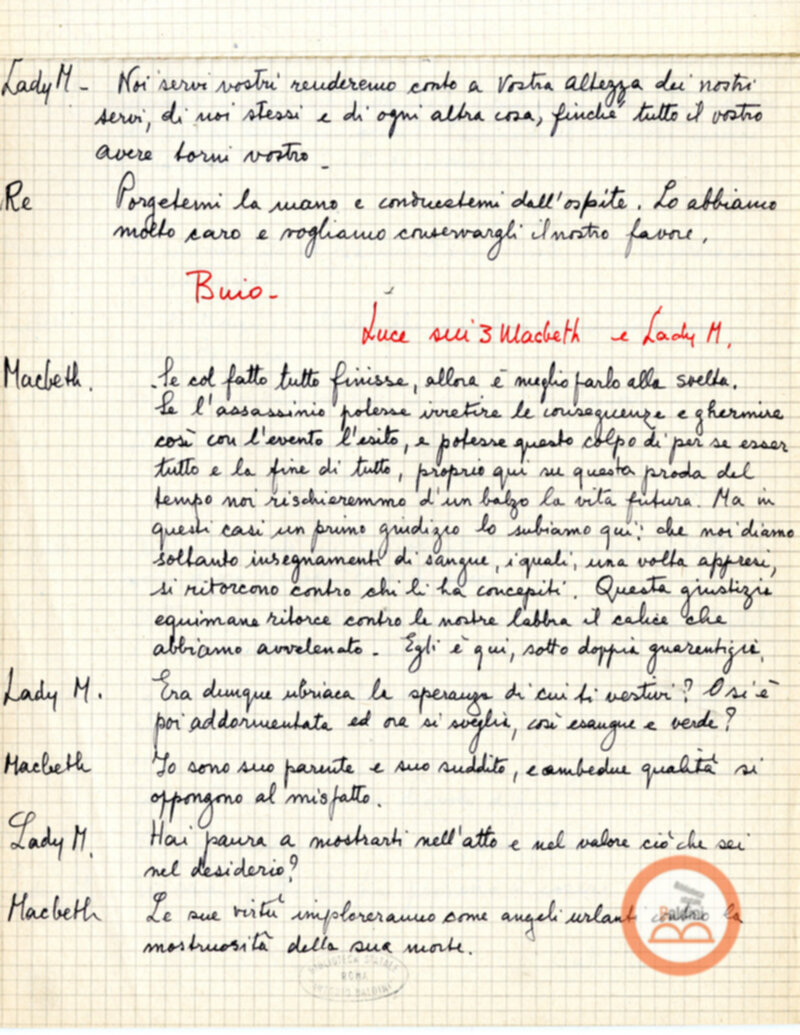 Lady M - Noi servi vostri renderemo conto a Vostra Altezza dei nostri
servi, di noi stessi e di ogni altra cosa, finché tutto il vostro
avere torni vostro -
Re Porgetemi la mano e conducetemi dall'ospite. Lo abbiamo
molto caro e vogliamo conservargli il nostro favore.
Buio -
Luce sui 3 Macbeth e Lady M.
Macbeth. Se col fatto tutto finisse, allora è meglio farlo alla svelta.
Se l'assassinio potesse irretire le conseguenze e ghermire
così con l'evento l'esito, e potesse questo colpo di per se esser
tutto e la fine di tutto, proprio qui su questa proda del
tempo noi rischieremmo d'un balzo la vita futura. Ma in
questi casi un primo giudizio lo subiamo qui: che noi diamo
soltanto insegnamenti di sangue, i quali, una volta appresi,
si ritorcono contro chi li ha concepiti. Questa giustizia
equimane ritorce contro le nostre labbra il calice che
abbiamo avvelenato - Egli è qui, sotto doppia guarentigia.
Lady M. Era dunque ubriaca la speranza di cui ti vestivi? O si è
poi addormentata ed ora si sveglia, così esangue e verde?
Macbeth Io sono suo parente e suo suddito, e ambedue qualità si
oppongono al misfatto.
Lady M. Hai paura a mostrarti nell'atto e nel valore ciò che sei
nel desiderio?
Macbeth Le sue virtù imploreranno come angeli urlanti contro la
mostruosità della sua morte.
BIBLIOTECA STATALE
ROMA
ANTONIO BALDINI